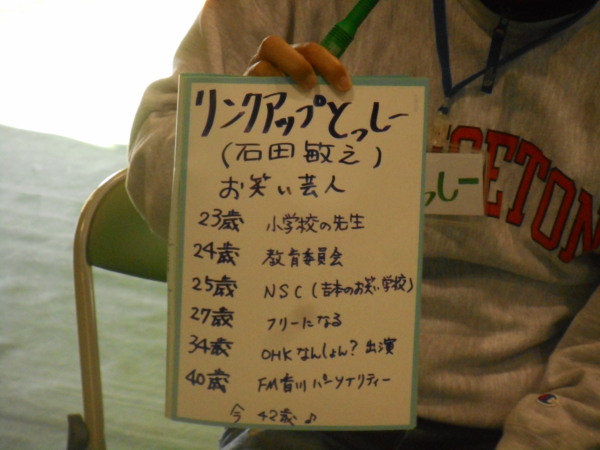 リンクアップとっしー
(石田敏之)
お笑い芸人
23歳 小学校の先生
24歳 教育委員会
25歳 NSC(吉本のお笑い学校)
27歳 フリーになる
34歳 OHKなんしょん?出演
40歳 FM香川パーソナリティー
今 42歳♪
っしー
CETON